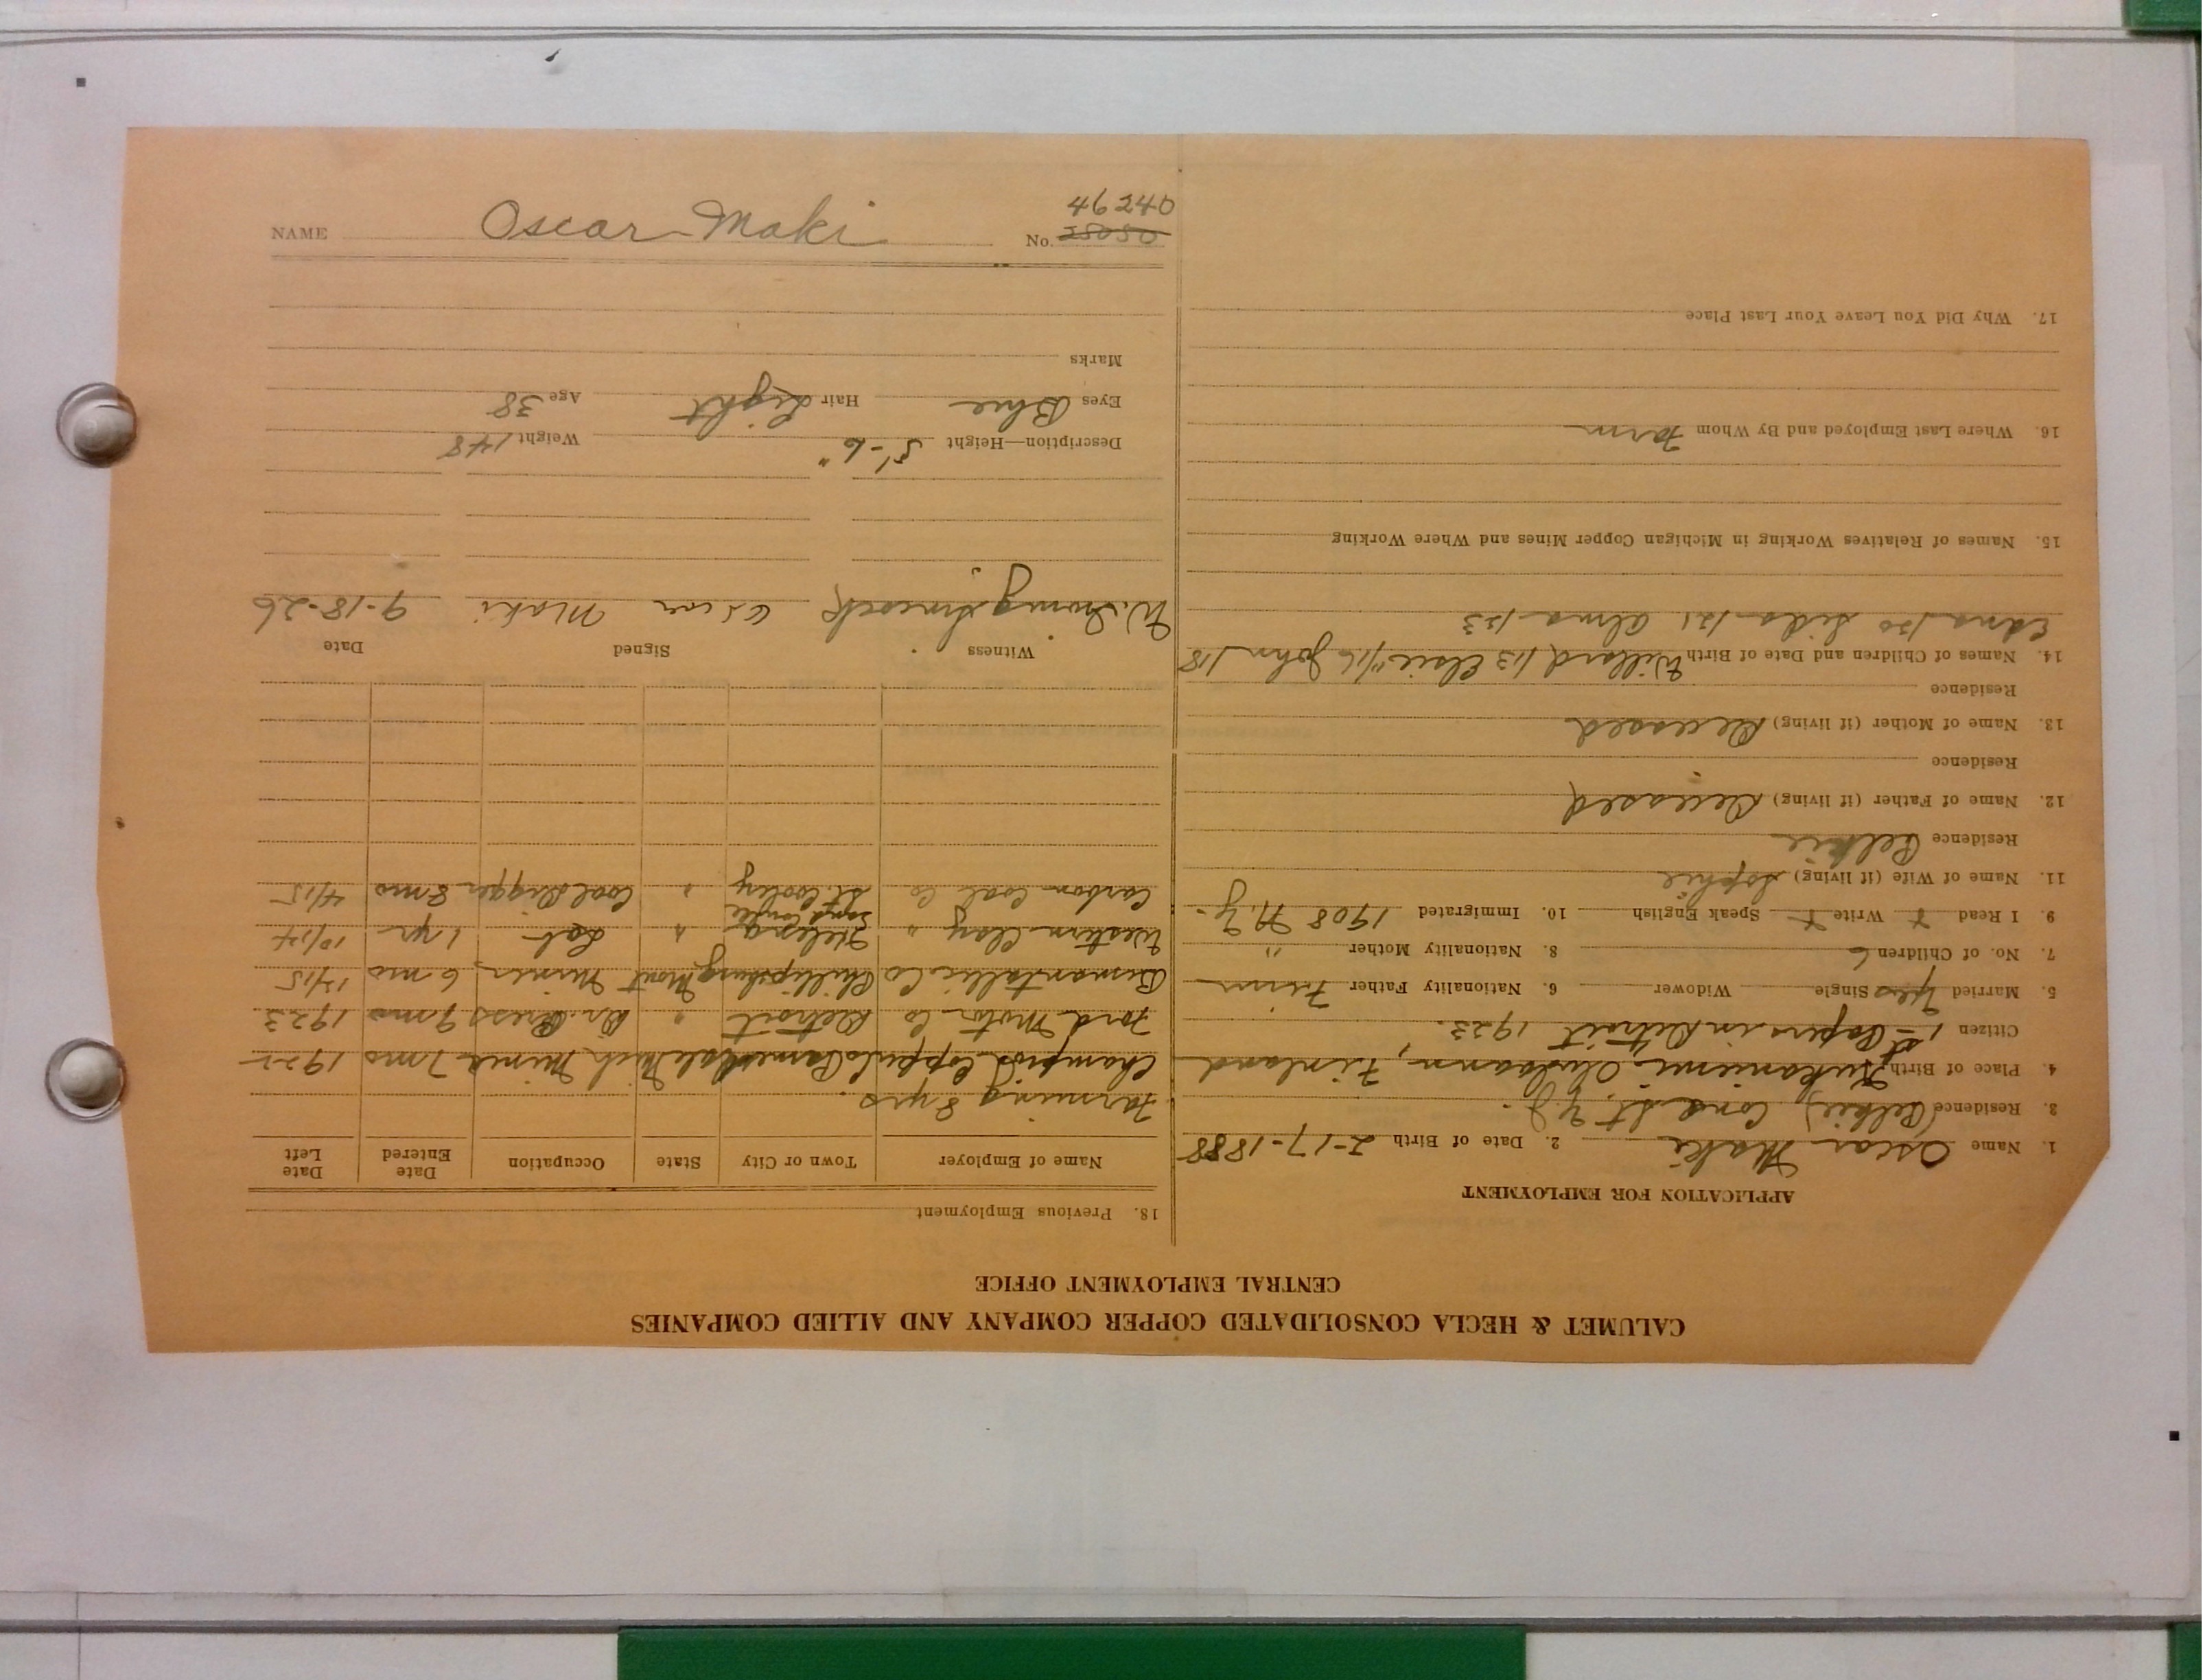 NAME Oscar Maki No. 28050
46240
CALUMET & HECLA CONSOLIDATED COPPER COMPANY AND ALLIED COMPANIES
CENTRAL EMPLOYMENT OFFICE
APPLICATION FOR EMPLOYMENT
1. Name Oscar Maki 2. Date of Birth 2-17-1888
3. Residence (Pelkie) Cone St.
4. Place of Birth Finland
Citizen 1st Papers in Detroit 1923.
5. Married Yes Single Widower 6. Nationality Father Finn
7. No. of Children 6 8. Nationality Mother "
9. I Read + Write + Speak English 10. Immigrated 1908 N.Y.
11. Name of Wife (if living) Sophie
Residence Pelkie
12. Name of Father (if living) Deceased
Residence
13. Name of Mother (if living) Deceased
Residence
14. Names of Children and Date of Birth Willard /13 Elsie /16 John /18
Edna /20 Lida /21 Alma /23
15. Names of Relatives Working in Michigan Copper Mines and Where Working
16. Where Last Employed and By Whom Farm
17. Why Did You Leave Your Last Place
18. Previous Employment
Name of Employer Town or City State Occupation Date Entered Date Left
Farming 8 yrs.
Champion Copper Co Painesdale Mich Miner 7 mos 1922
Ford Motor Co Detroit " Dr. Press 9 mos 1923
Bimentallic Co Phillipsburg Mont Miner 6 mos 12/15
Western Clay " Helena " Lab 1 yr 10/14
Carbon Coal Co " Coal Digger 8 mos 4/15
Witness Signed Date
W. Oscar Maki 9-18-26
Description—Height 5'-6" Weight 148
Eyes Blue Hair Light Age 38
Marks